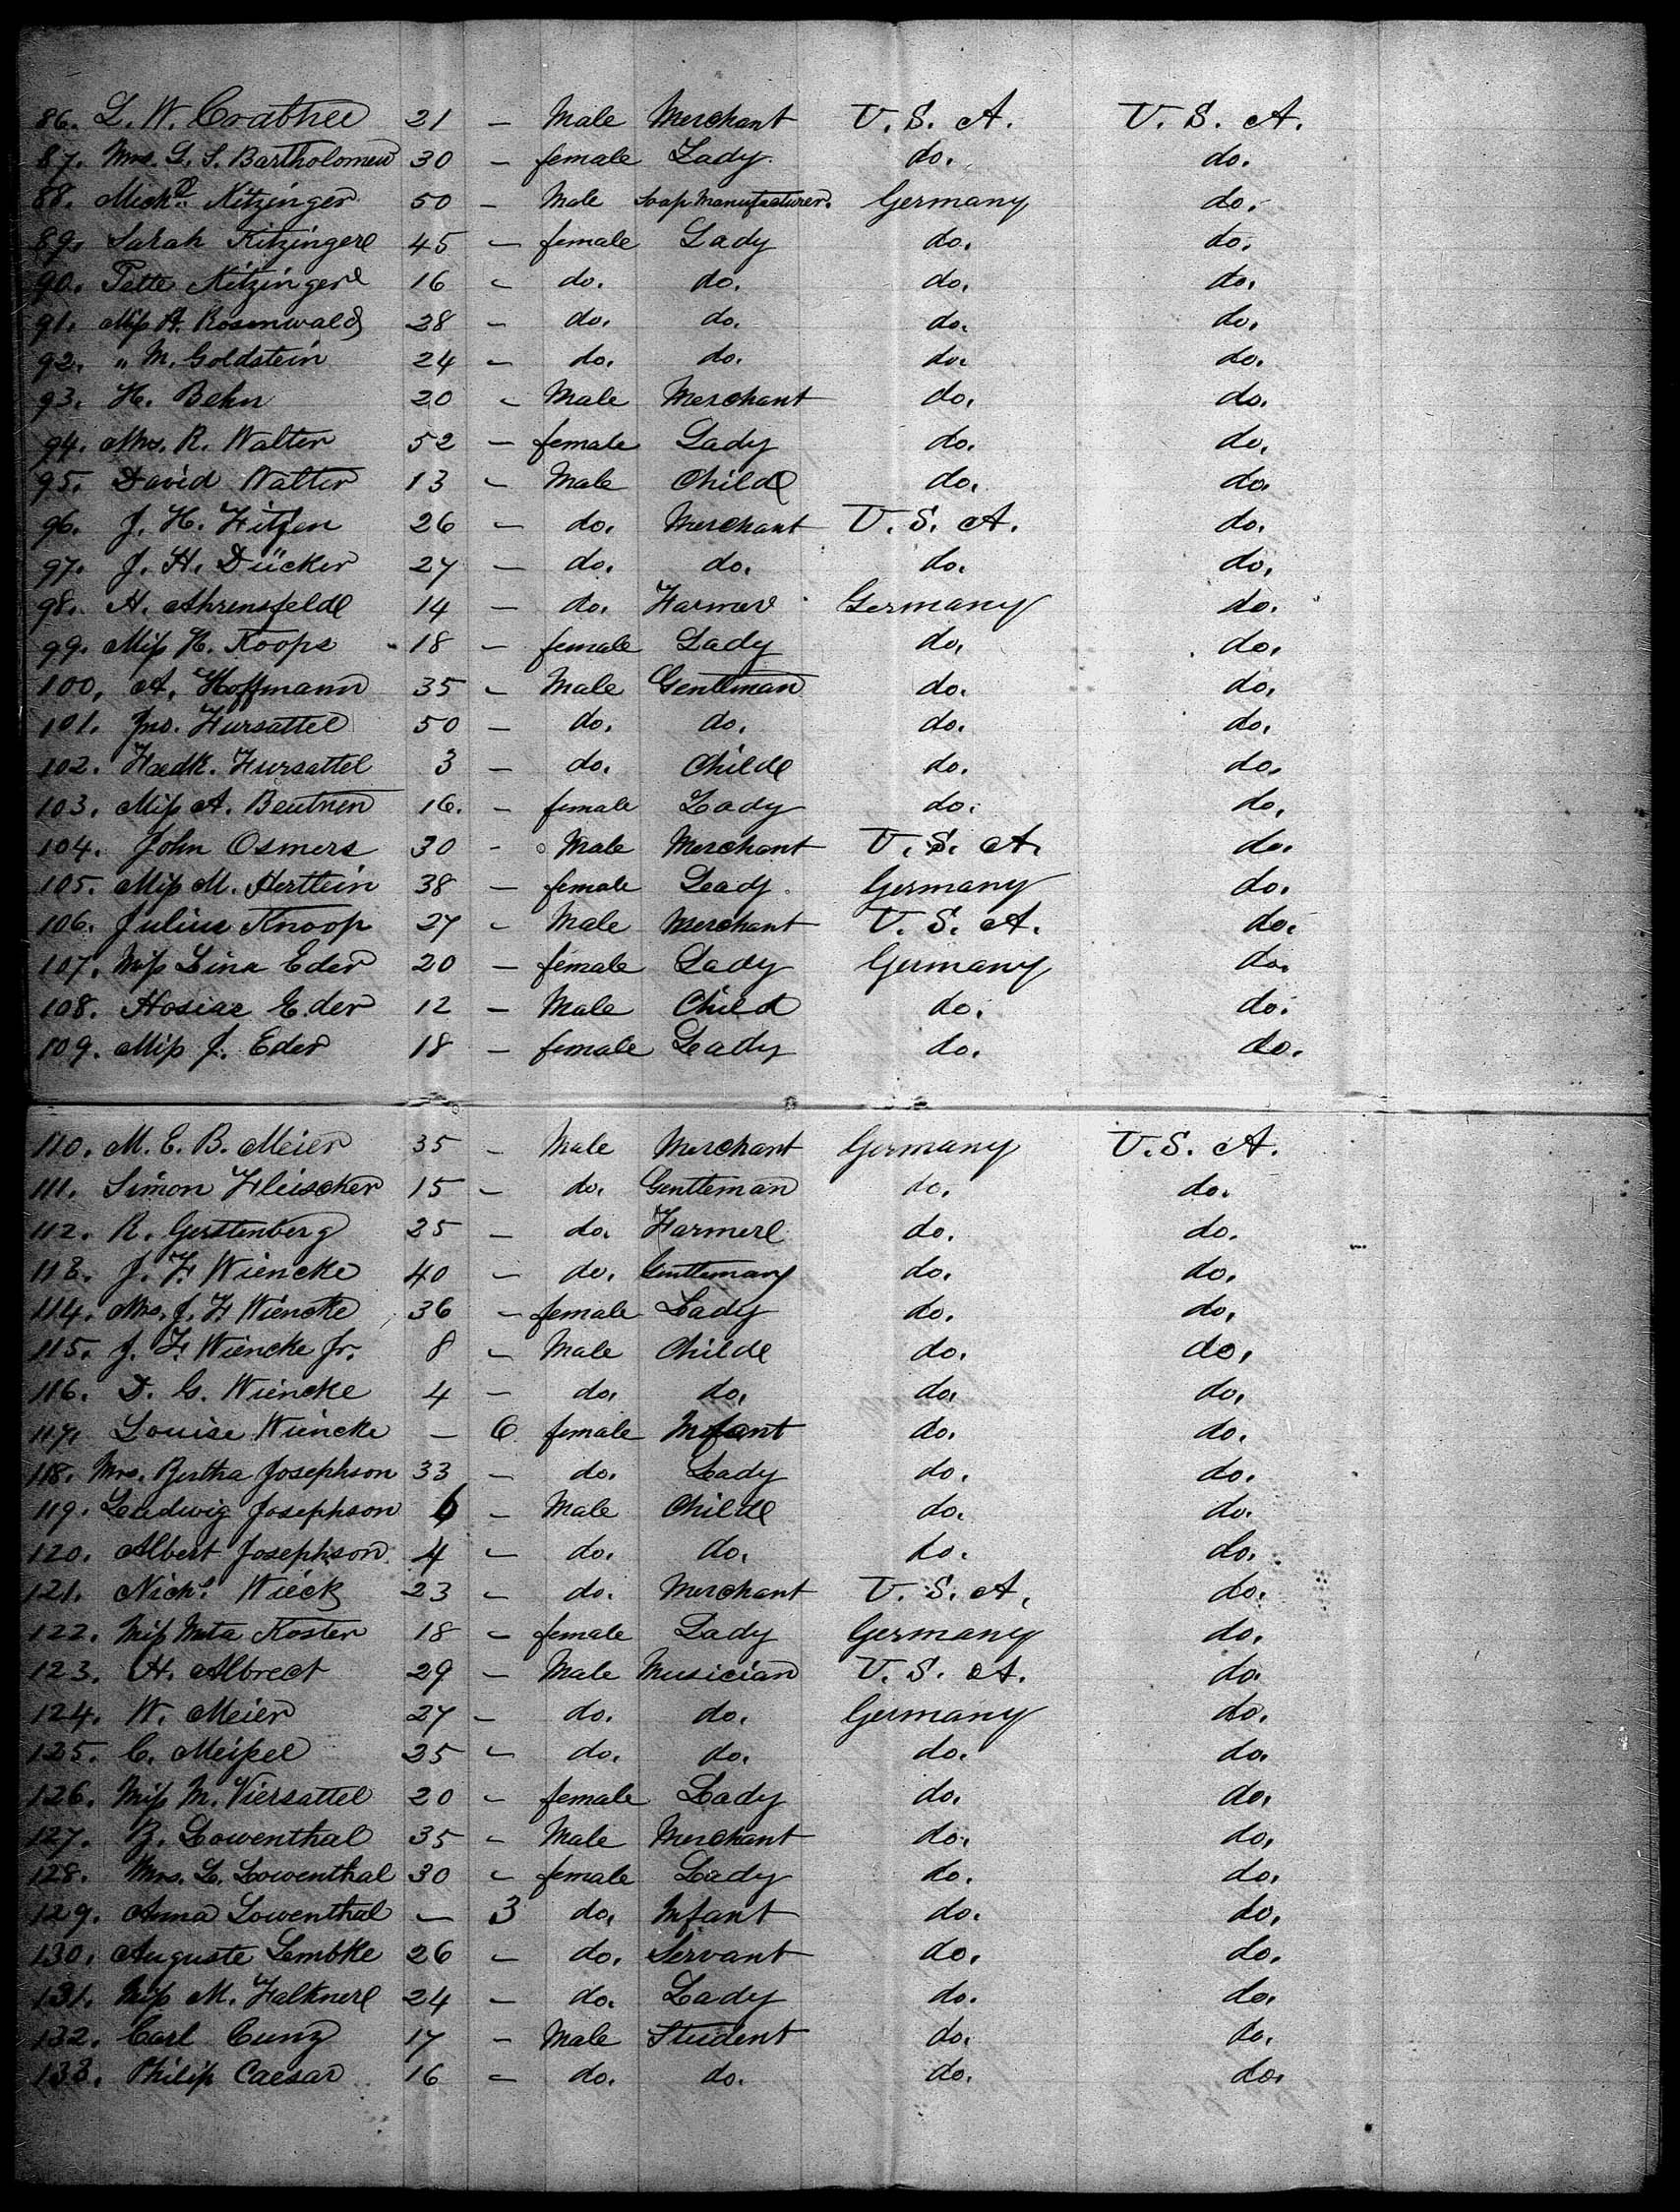 86. L. W. Crabtree 21 – Male Merchant U. S. A. U. S. A.
87. Mrs. L. S. Bartholomew 30 – female Lady do. do.
88. Michl. Kitzinger 50 – Male Soap Manufacturer. Germany do.
89. Sarah Kitzinger 45 – female Lady do. do.
90. Tette Kitzinger 16 – do. do. do. do.
91. Miss A. Rosenwald 28 – do. do. do. do.
92. " M. Goldstein 24 – do. do. do. do.
93. H. Behn 20 – Male Merchant do. do.
94. Mrs. R. Walter 52 – female Lady do. do.
95. David Walter 13 – Male Child do. do.
96. J. H. Fitjen 26 – do. Merchant U. S. A. do.
97. J. H. Dücker 27 – do. do. do. do.
98. H. Ahrensfeld 14 – do. Farmer Germany do.
99. Miss H. Koops 18 – female Lady do. do.
100. A. Hoffmann 35 – Male Gentleman do. do.
101. Jno. Fursattel 50 – do. do. do. do.
102. Fredk. Fursattel 3 – do. Child do. do.
103. Miss A. Beutner 16. – female Lady do. do.
104. John Osmers 30 – Male Merchant U. S. A. do.
105. Miss M. Hertlein 38 – female Lady. Germany do.
106. Julius Knoop 27 – Male Merchant U. S. A. do.
107. Miss Lina Eder 20 – female Lady Germany do.
108. Hosiae Eder 12 – Male Child do. do.
109. Miss J. Eder 18 – female Lady do. do.
110. M. E. B. Meier 35 – Male Merchant Germany U. S. A.
111. Simon Fleischer 15 – do. Gentleman do. do.
112. R. Gerstenberg 25 – do. Farmer do. do.
113. J. F. Wiencke 40 – do. Gentleman do. do.
114. Mrs. J. F. Wiencke 36 – female Lady do. do.
115. J. F. Wiencke Jr. 8 – Male Child do. do.
116. D. G. Wiencke 4 – do. do. do. do.
117. Louise Wiencke – 6 female Infant do. do.
118. Mrs. Bertha Josephson 33 – do. Lady do. do.
119. Ludwig Josephson 6 – Male Child do. do.
120. Albert Josephson 4 – do. do. do. do.
121. Nichs. Wieck 23 – do. Merchant U. S. A. do.
122. Miss Meta Koster 18 – female Lady Germany do.
123. H. Albrect 29 – Male Musician U. S. A. do.
124. W. Meier 27 – do. do. Germany do.
125. C. Meissel 25 – do. do. do. do.
126. Miss M. Viersattel 20 – female Lady do. do.
127. B. Lowenthal 35 – Male Merchant do. do.
128. Mrs. L. Lowenthal 30 – female Lady do. do.
129. Anna Lowenthal – 3 do. Infant do. do.
130. Auguste Lembke 26 – do. Servant do. do.
131. Miss M. Falkner 24 – do. Lady do. do.
132. Carl Cunz 17 – Male Student do. do.
133. Philip Caesar 16 – do. do. do. do.